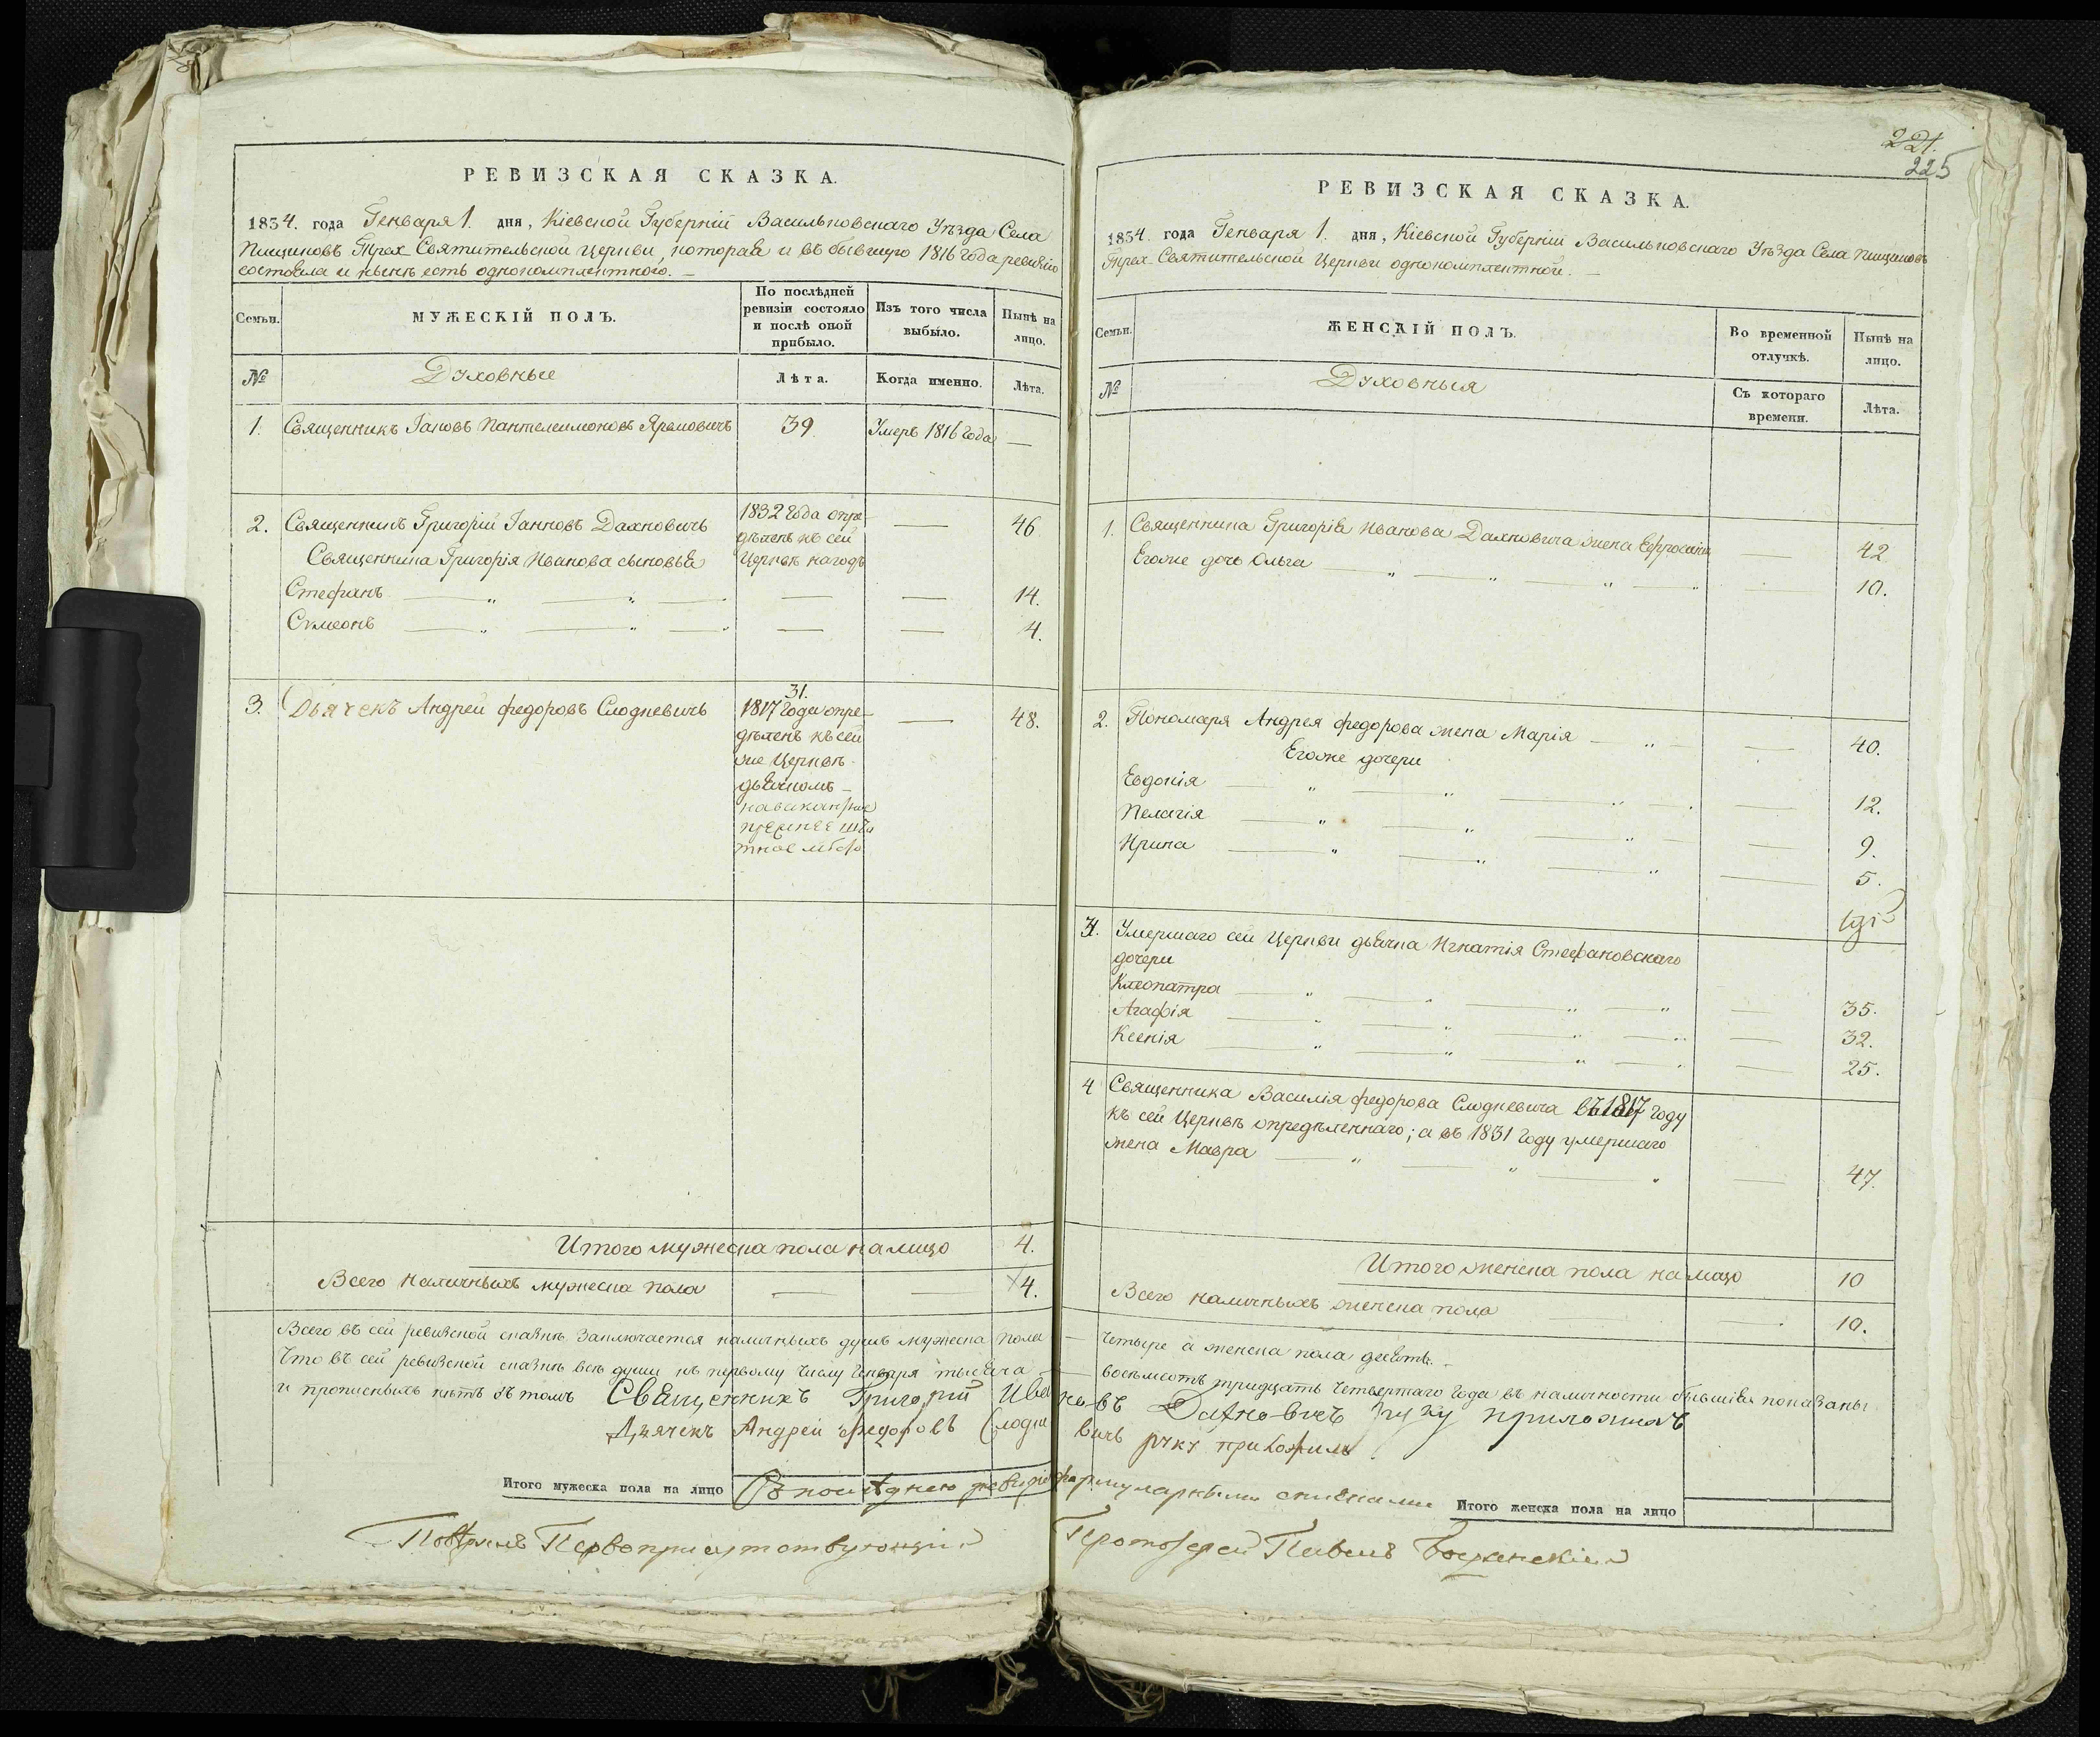 РЕВИЗСКАЯ СКАЗКА.
1834. года Генваря 1. дня, Кіевской Губерніи Васильковскаго Уѣзда Села
Пищиковъ Трех Святительской Церкви, которая и въ бывшую 1816 года ревизію
состояла и нынѣ есть однокомплектного. —
Семьи.
МУЖЕСКІЙ ПОЛЪ.
По послѣдней
ревизіи состояло
и послѣ оной
прибыло.
Изъ того числа
выбыло.
Нынѣ на
лицо.
№
Духовныe
Лѣта.
Когда именно.
Лѣта.
1. Священникъ Іаковъ Пантелеимоновъ Яремовичъ 39 Умеръ 1816 года —
2. Священникъ Григорій Іанновъ Дахновичъ 1832 года опре- — 46
дѣленъ къ сей
Священника Григорія Иванова сыновья Церкви
Стефанъ — „ — „ — — — 14.
Сѵмеонъ — „ — „ — — — 4.
31.
3. Дьячекъ Андрей Федоровъ Слодкевичъ 1817 года опре- — 48.
дѣленъ къ сей
же Церкви
дьячкомъ —
Итого мужеска пола на лицо 4.
Всего наличныхъ мужеска пола — — 4.
221.
225
РЕВИЗСКАЯ СКАЗКА.
1834 года Генваря 1. дня, Кіевской Губерніи Васильковскаго Уѣзда Села Пищиковъ
Трех-Святительской Церкви однокомплектной. —
Семьи.
ЖЕНСКІЙ ПОЛЪ.
Во временной
отлучкѣ.
Нынѣ на
лицо.
№
Духовныя
Съ котораго
времени.
Лѣта.
1. Священника Григорія Иванова Дахновича жена Ефросинія — 42
Егоже дочь Ольга — „ — „ — „ — 10.
2. Пономаря Андрея Федорова жена Марія — „ — — 40.
Егоже дочери
Евдокія — „ — „ — „ — 12.
Пелагія — „ — „ — „ — 9.
Ирина — „ — „ — „ — 5.
3. Умершаго сей Церкви дьячка Игнатія Стефановскаго
дочери
Клеопатра — „ — „ — „ — „ — 35.
Агафія — „ — „ — „ — 32.
Ксенія — „ — „ — „ — 25.
4 Священника Василія Федорова Слодкевича въ 1817 году
къ сей Церквѣ опредѣленнаго; а въ 1831 году умершаго
жена Мавра — „ — „ — „ — 47.
Итого женска пола на лицо 10
Всего наличныхъ женска пола — — 10.
Всего въ сей ревизской сказкѣ заключается наличныхъ душъ мужеска пола — четыре а женска пола десять. —
Что въ сей ревизской сказкѣ всѣ души къ первому числу Генваря тысяча — восемьсотъ тридцать четвертаго года въ наличности бывшія показаны
и прописныхъ нѣтъ въ томъ Священникъ Григорій Ивановъ Дахновичъ руку приложилъ
Дьячекъ Андрей Федоровъ Слодкевичъ руку приложилъ
Итого мужеска пола на лицо
Съ послѣднею ревизіею формулярными списками
Итого женска пола на лицо
Повѣрялъ Первоприсутствующій Протоіерей Павелъ